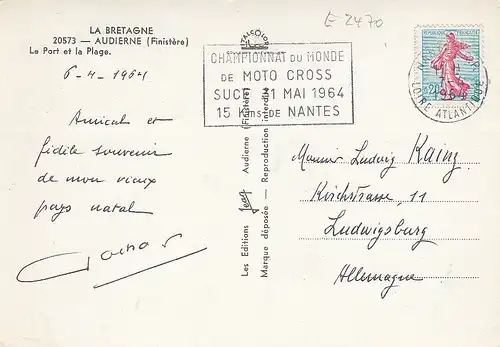 LA BRETAGNE
20573 — AUDIERNE (Finistère)
Le Port et la Plage.
6-4-1964
Amical et
fidile souvenir
de mon vieux
pays natal
E 2470
CHAMPIONNAT DU MONDE
DE MOTO CROSS
SUCÉ 31 MAI 1964
15 Kms DE NANTES
LOIRE ATLANTIQUE
Les Editions Jean Audierne (Finistère)
Marque déposée — Reproduction interdite
Monsieur Ludwig Kainz
Kirchstrasse, 11
Ludwigsburg
Allemagne